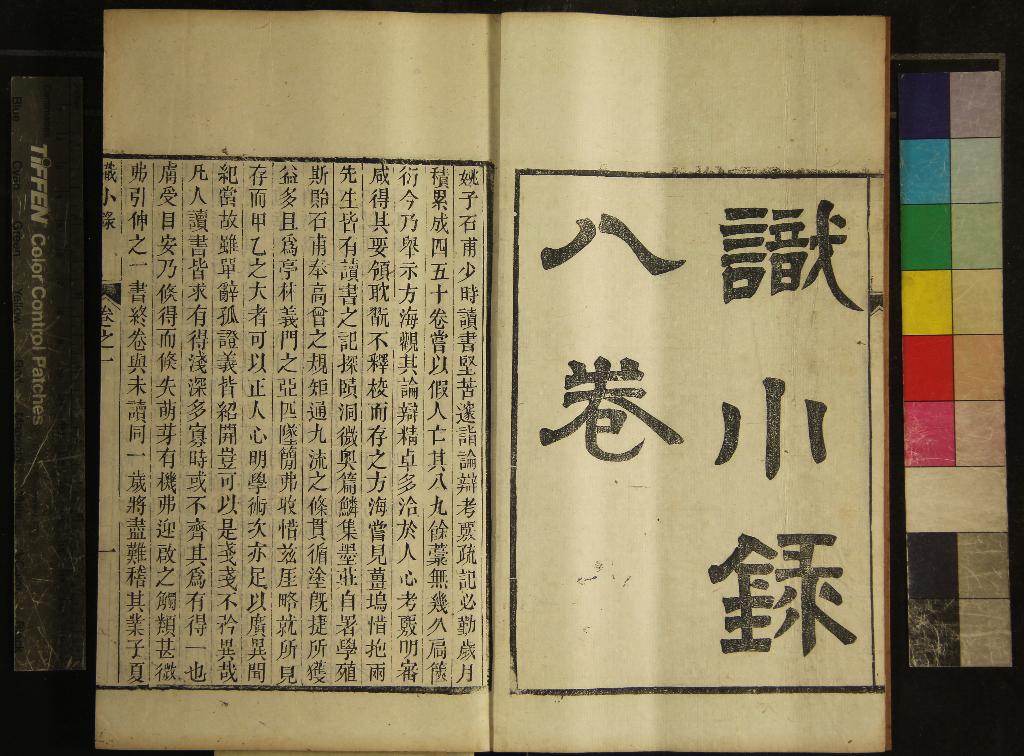 識小錄
八卷
姚子石甫少時讀書堅苦邃詣論辯考覈疏記必勤歲月
積累成四五十卷嘗以假人亡其八九餘藁無幾久扃篋
衍今乃舉示方海觀其論辯精卓多洽於人心考覈明審
咸得其要領耽翫不釋校而存之方海嘗見薑塢惜抱兩
先生皆有讀書之記探賾洞微奧篇鱗集墨莊自署學殖
斯貽石甫奉高曾之規矩通九流之條貫循塗旣捷所獲
益多且爲亭林義門之亞匹墜簡弗收惜茲厓略就所見
存而甲乙之大者可以正人心明學術次亦足以廣異聞
紀當故雖單辭孤證義皆紹開豈可以是戔戔不矜異哉
凡人讀書皆求有得淺深多寡時或不齊其爲有得一也
膚受目安乃倏得而倏失萌芽有機弗迎啟之觸類甚微
弗引伸之一書終卷與未讀同一歲將盡難稽其業子夏
識小錄
卷之一
一
TIFFEN Color Control Patches
Blue
Cyan
Green
Yellow
Red